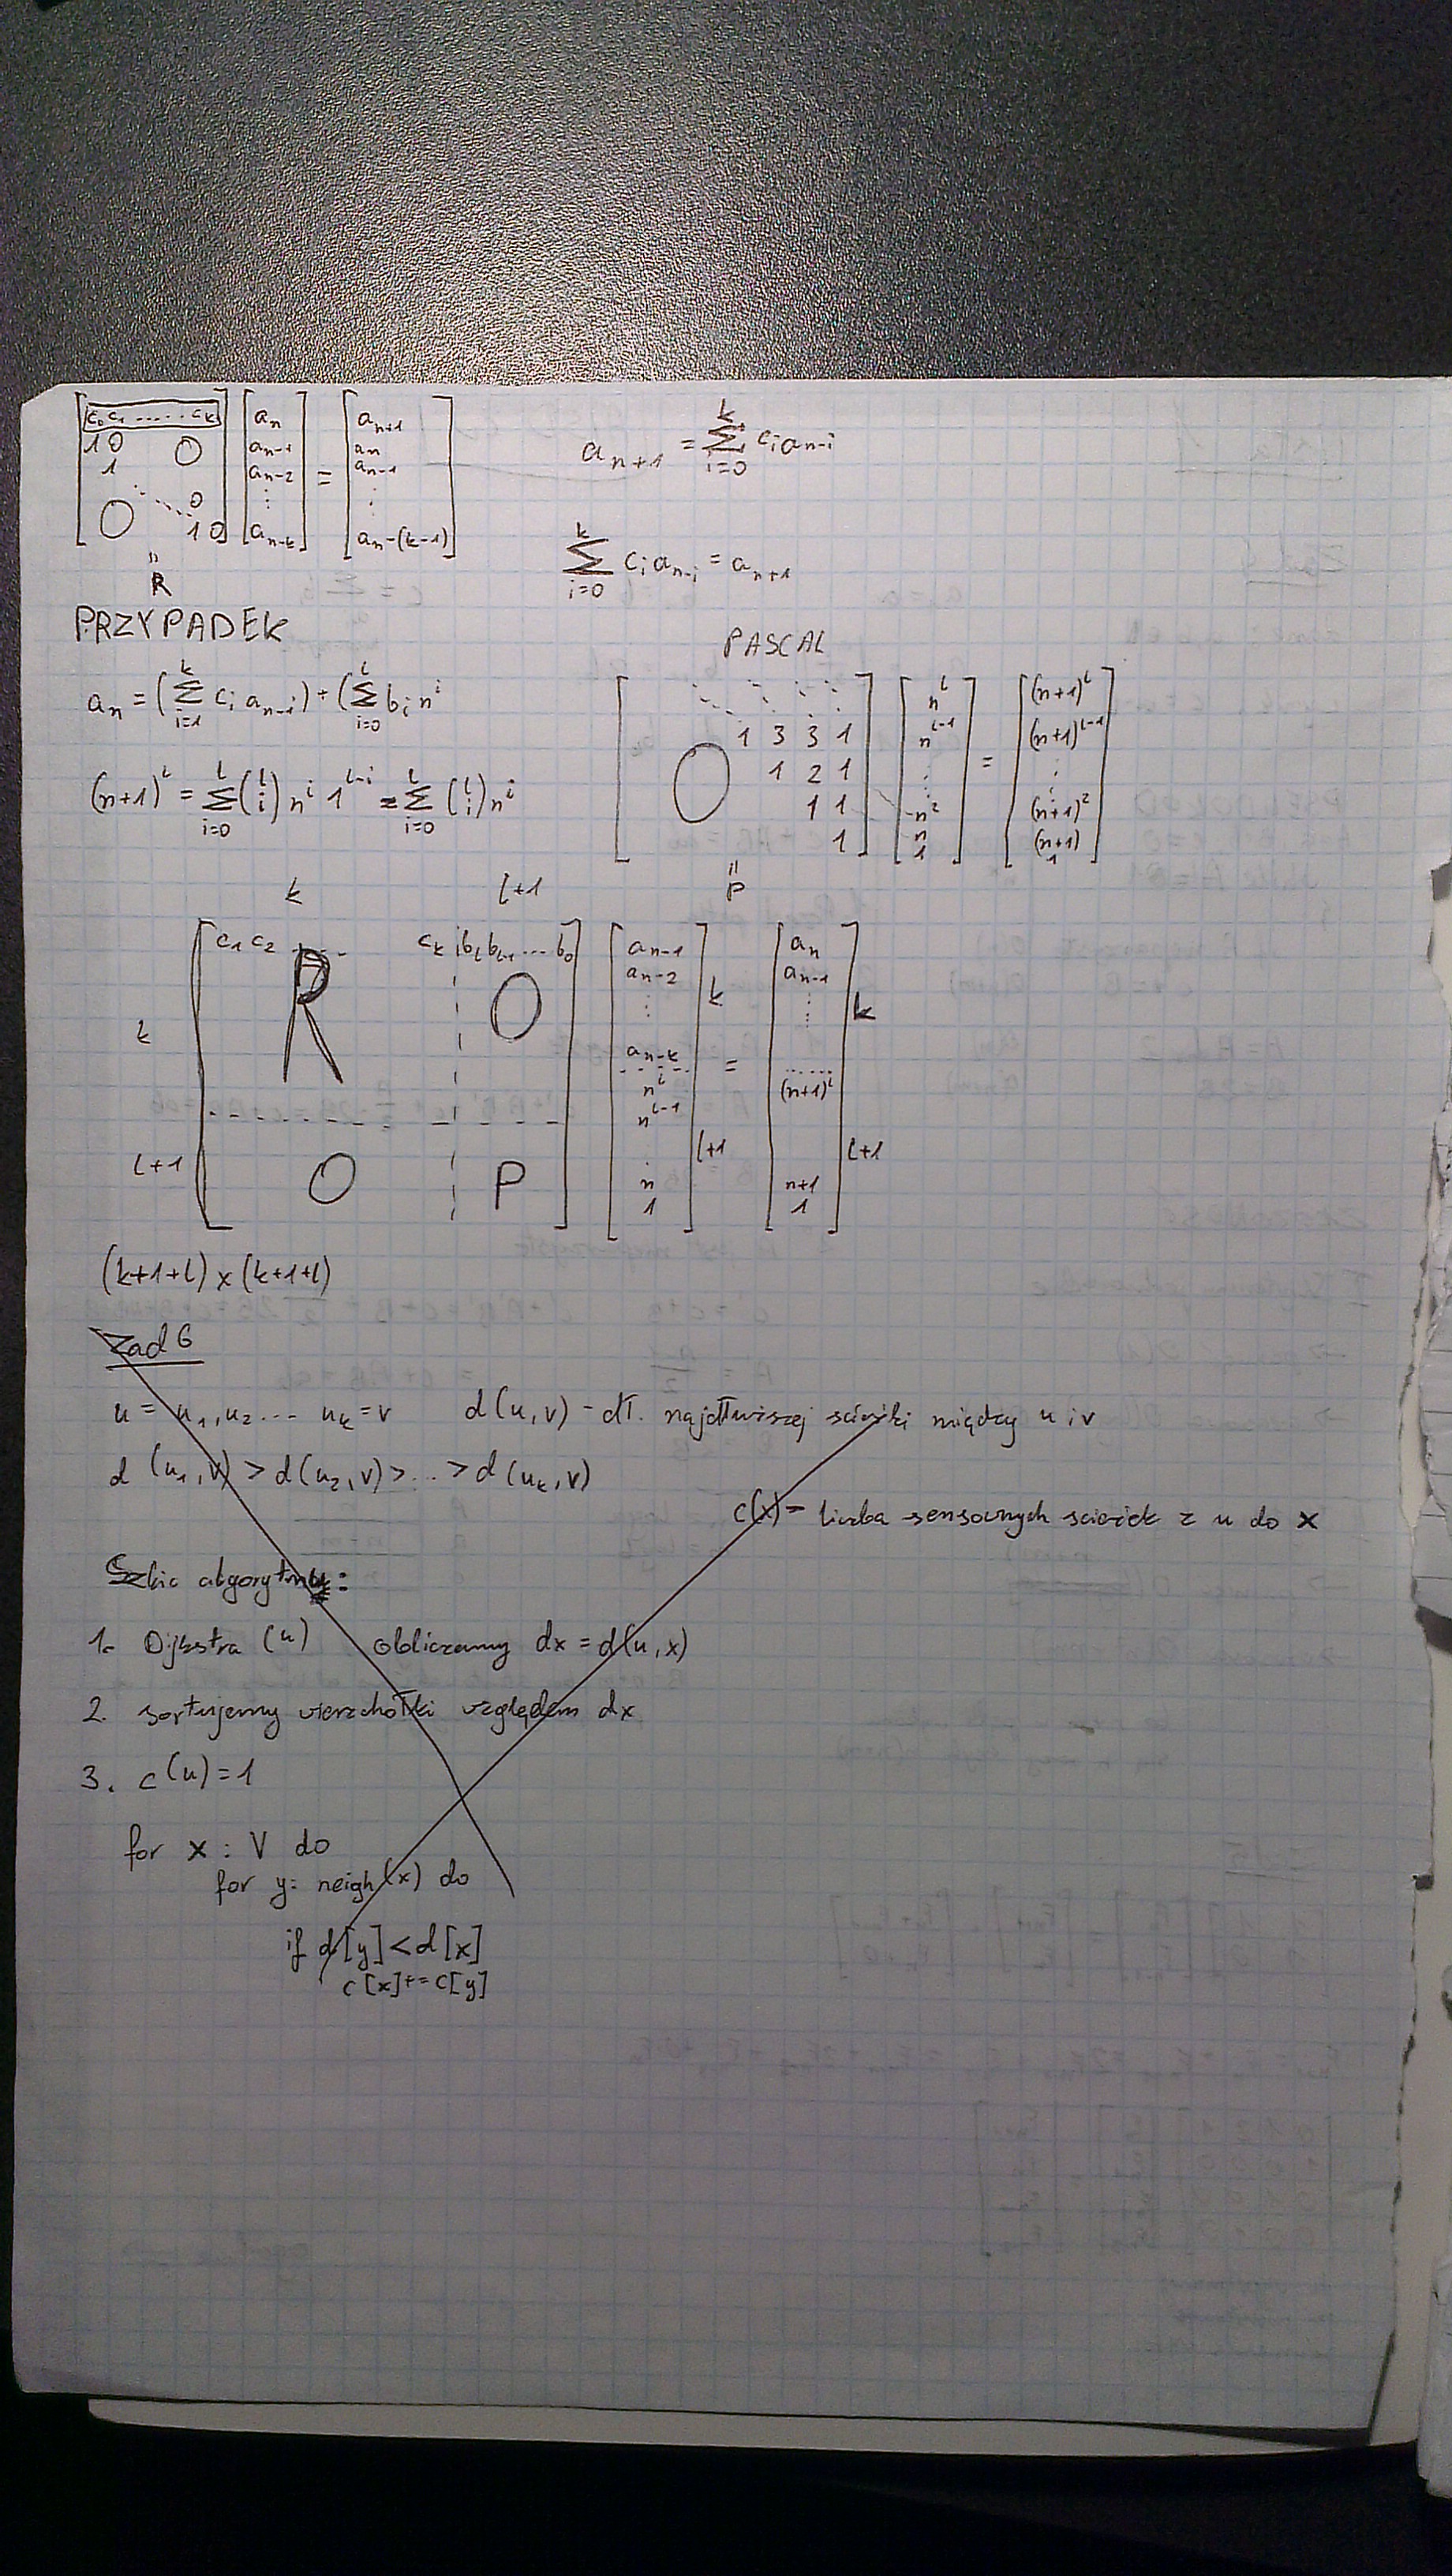 [c₀ c₁ ..... cₖ] [aₙ] [aₙ₊₁]
1 0 0 aₙ₋₁ aₙ
1 aₙ₋₂ = aₙ₋₁
⋱ 0 ⋮ ⋮
0 1 0 aₙ₋ₖ aₙ₋(k-1)
"
R
aₙ₊₁ = Σ_{i=0}^{k} cᵢ aₙ₋ᵢ
Σ_{i=0}^{k} cᵢ aₙ₋ᵢ = aₙ₊₁
PRZYPADEK
aₙ = (Σ_{i=1}^{k} cᵢ aₙ₋ᵢ) + (Σ_{i=0}^{l} bᵢ nⁱ
(n+1)^l = Σ_{i=0}^{l} (l i) nⁱ 1^{l-i} = Σ_{i=0}^{l} (l i) nⁱ
PASCAL
n^l (n+1)^l
1 3 3 1 n^{l-1} (n+1)^{l-1}
0 1 2 1 ⋮ = ⋮
1 1 n² (n+1)²
n (n+1)
1 1 1
"
P
k l+1
c₁ c₂ ... cₖ b_l b_{l-1} .... b₀ aₙ₋₁ aₙ
k R 0 aₙ₋₂ k aₙ₋₁ k
⋮ ⋮
aₙ₋ₖ =
n^l (n+1)^l
n^{l-1}
l+1 0 P l+1 l+1
n n+1
1 1
(k+1+l) x (k+1+l)
Zad 6
u = u₁, u₂ ... uₖ = v d(u,v) - dł. najdłuższej ścieżki między u i v
d (u₁,v) > d(u₂,v) > ... > d(uₖ,v)
c(x) = liczba sensownych ścieżek z u do x
Szkic algorytmu:
1. Dijkstra (u) obliczamy dx = d(u,x)
2. sortujemy wierzchołki względem dx
3. c(u) = 1
for x : V do
for y: neigh(x) do
if d[y] < d[x]
c[x] += c[y]